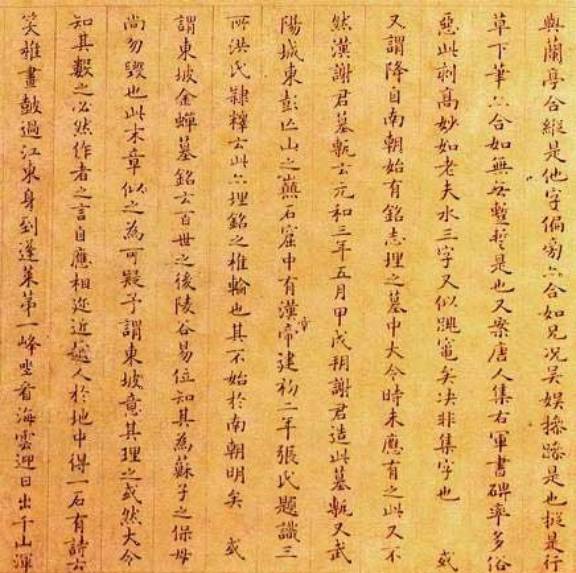 與蘭亭合縱是他字偏旁亦合如兄况吴娱操躁是也縱是行
草下筆亦合如無是也又案唐人集右軍書碑率多俗
惡此刻高妙如老夫水三字又似興矣决非集字也 或
又謂降自南朝始有銘志埋之墓中大令時未應有之此又不
然漢謝君墓甎云元和三年五月甲戌朔謝君造此墓甎又武
陽城東彭亡山之巔石窟中有漢章帝建初二年張氏題識三
所洪氏隸釋云此亦埋銘之椎輪也其不始於南朝明矣 或
謂東坡金蟬墓銘云百世之後陵谷易位知其為蘇子之保母
尚勿毀也此末章似之為可疑予謂東坡竟其理之或然大令
知其數之必然作者之言自應相迩近越人於地中得一石有詩云
笑畫鼓過江東身到蓬萊第一峰坐看海雲迎日出千山渾